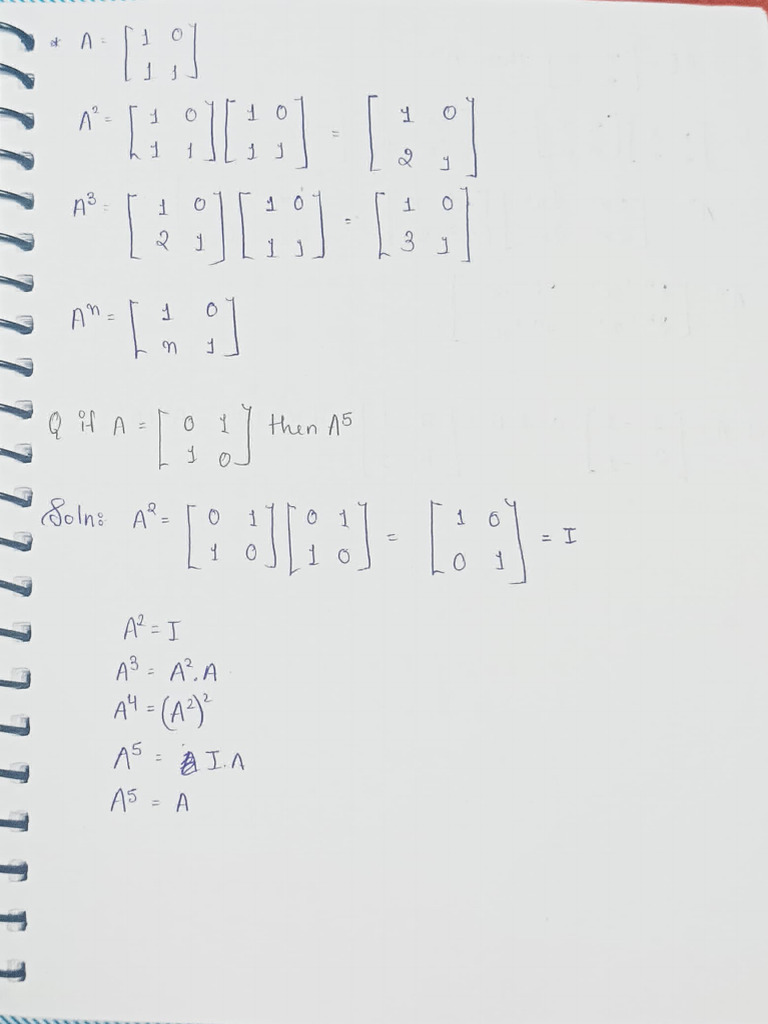 * A = [1 0; 1 1]
A² = [1 0; 1 1] [1 0; 1 1] = [1 0; 2 1]
A³ = [1 0; 2 1] [1 0; 1 1] = [1 0; 3 1]
Aⁿ = [1 0; n 1]
Q if A = [0 1; 1 0] then A⁵
Soln: A² = [0 1; 1 0] [0 1; 1 0] = [1 0; 0 1] = I
A² = I
A³ = A².A
A⁴ = (A²)²
A⁵ = I.A
A⁵ = A